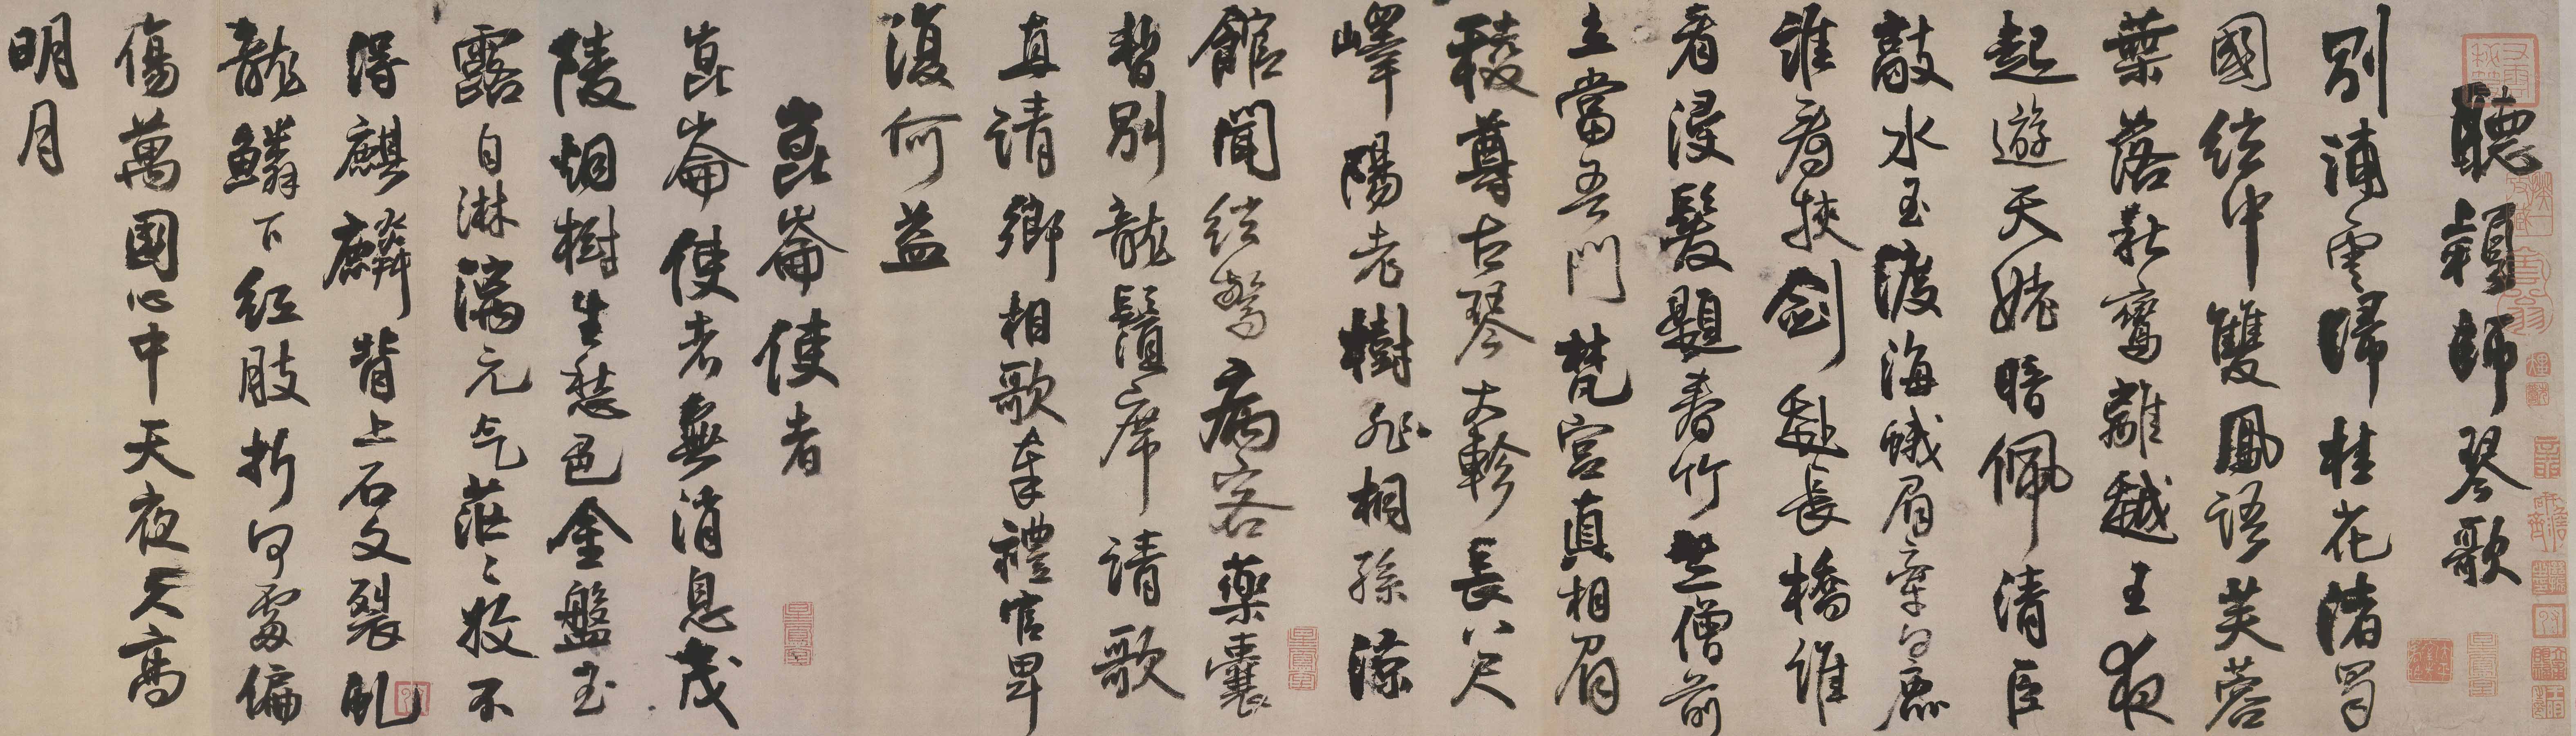 聽穎師琴歌
別浦雲歸桂花渚蜀
國絃中雙鳳語芙蓉
葉落秋鸞離越王夜
起遊天姥暗佩清臣
敲水玉渡海蛾眉牽白鹿
誰看挾劍赴長橋誰
看浸髮題春竹竺僧前
立當吾門梵宮真相眉
稜尊古琴大軫長八尺
嶧陽老樹非桐孫涼
館聞絃驚病客藥囊
暫別龍鬚席請歌
直請卿相歌奉禮官卑
復何益
崑崙使者
崑崙使者無消息茂
陵烟樹生愁色金盤玉
露自淋漓元气茫〻收不
得麒麟背上石文裂虬
龍鱗下紅肢折何處偏
傷萬國心中天夜久高
明月